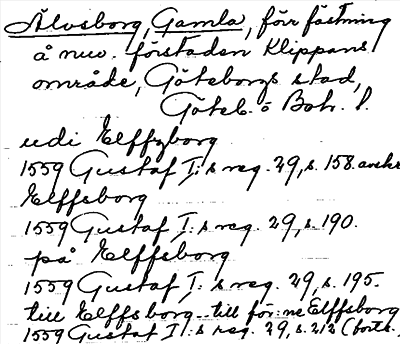 Älvsborg, Gamla, förr fästning
å nuv. förstaden Klippans
område, Göteborgs stad,
Göteb. o Boh. l.
udi Elffzborg
1559 Gustaf I:s reg. 29, s. 158. avskr.
Elffsborg
1559 Gustaf I:s reg. 29, s. 190.
på Elffsborg
1559 Gustaf I:s reg. 29, s. 195.
till Elffsborg - till för:ne Elffsborg
1559 Gustaf I:s reg. 29, s. 212 (forts.)